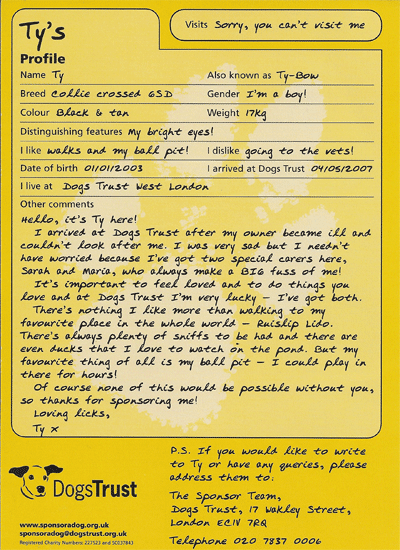 Ty's
Profile
Visits Sorry, you can't visit me
Name Ty
Also known as Ty-Bow
Breed Collie crossed GSD
Gender I'm a boy!
Colour Black & tan
Weight 17Kg
Distinguishing features My bright eyes!
I like walks and my ball pit!
I dislike going to the vets!
Date of birth 01/01/2003
I arrived at Dogs Trust 04/05/2007
I live at Dogs Trust West London
Other comments
Hello, it's Ty here!
I arrived at Dogs Trust after my owner became ill and
couldn't look after me. I was very sad but I needn't
have worried because I've got two special carers here,
Sarah and Maria, who always make a BIG fuss of me!
It's important to feel loved and to do things you
love and at Dogs Trust I'm very lucky – I've got both.
There's nothing I like more than walking to my
favourite place in the whole world – Ruislip Lido.
There's always plenty of sniffs to be had and there are
even ducks that I love to watch on the pond. But my
favourite thing of all is my ball pit – I could play in
there for hours!
Of course none of this would be possible without you,
so thanks for sponsoring me!
Loving licks,
Ty x
DogsTrust
www.sponsoradog.org.uk
sponsoradog@dogstrust.org.uk
Registered Charity Numbers: 227523 and SC037843
P.S. If you would like to write
to Ty or have any queries, please
address them to:
The Sponsor Team,
Dogs Trust, 17 Wakley Street,
London EC1V 7RQ
Telephone 020 7837 0006